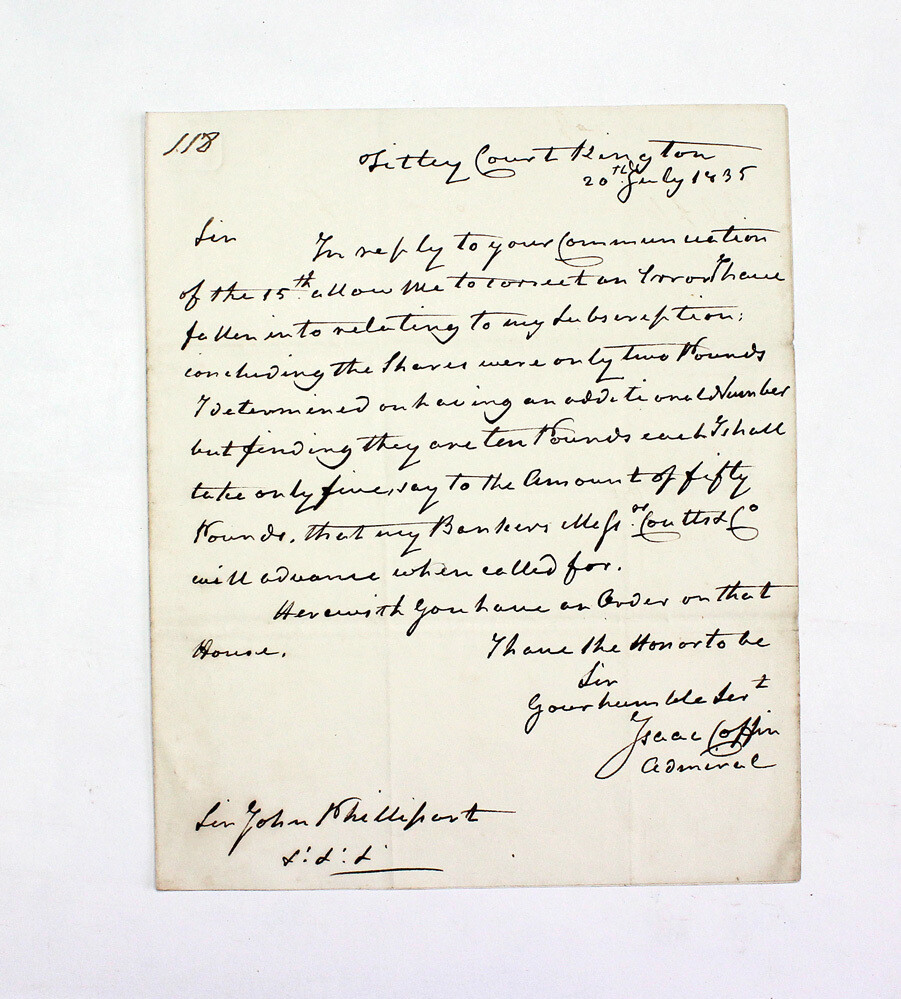 118
Titley Court Kington
20th July 1835
Sir In reply to your Communication
of the 15th allow Me to correct an Error I have
fallen into relating to my Subscription;
concluding the Shares were only two Pounds
I determined on having an additional Number
but finding they are ten Pounds each I shall
take only five, say to the Amount of fifty
Pounds, that my Bankers Messrs Coutts & Co
will advance when called for.
Herewith You have an Order on that
House. I have the Honor to be
Sir
Your humble Servt
Isaac Coffin
Admiral
Sir John Phillipart
&: &: &